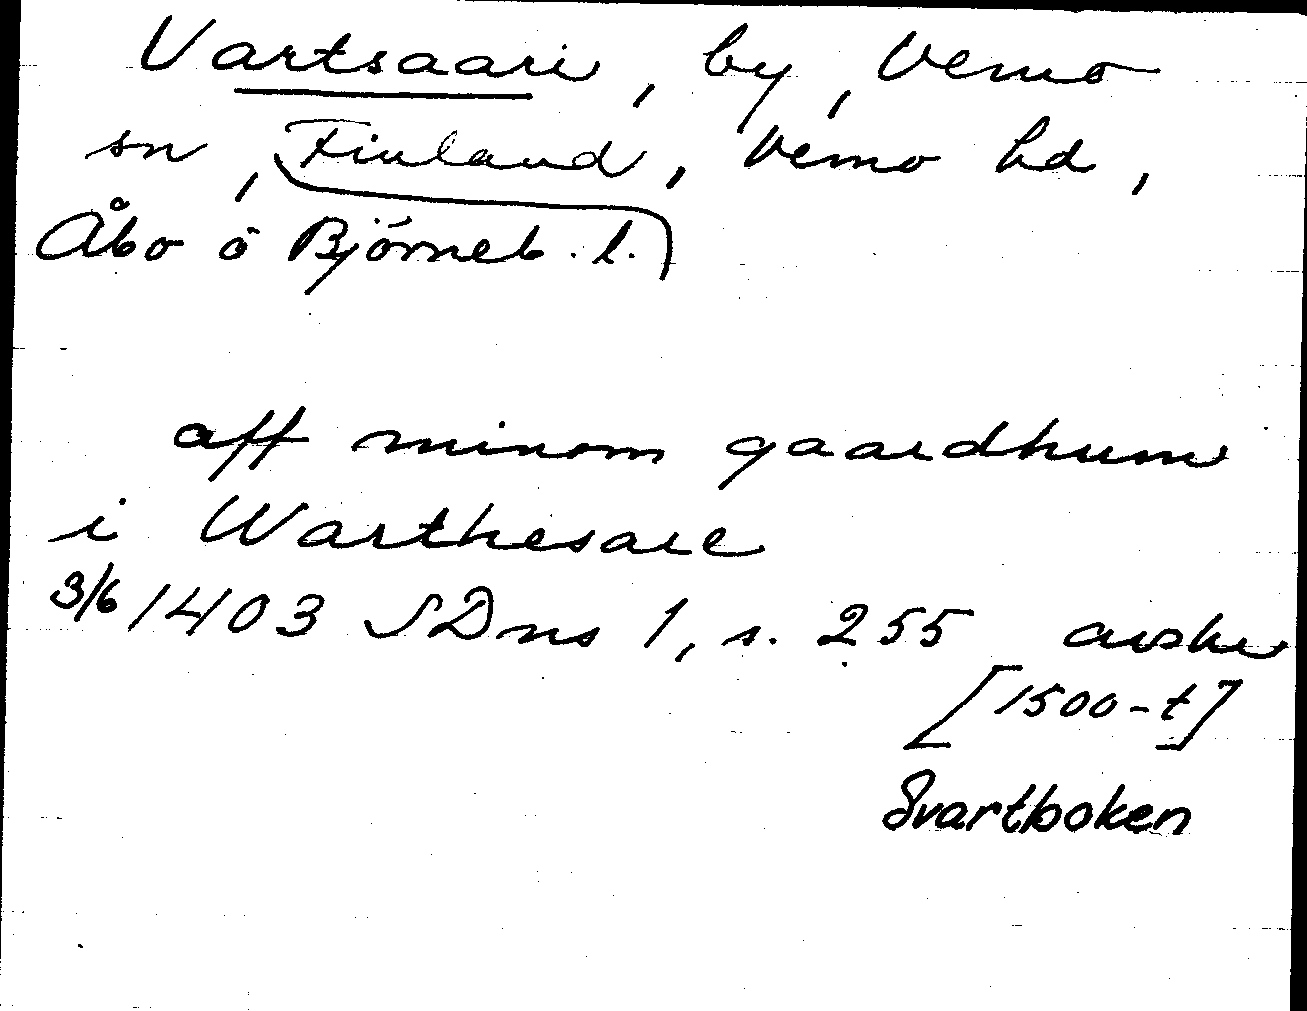 Vartsaari, by, Vemo
sn, Finland, Vemo hd,
Åbo o Björneb. l.
aff minom gaardhum
i Warthesare
3/6 1403 SDns 1, s. 255 avskr
[1500-t]
Svartboken